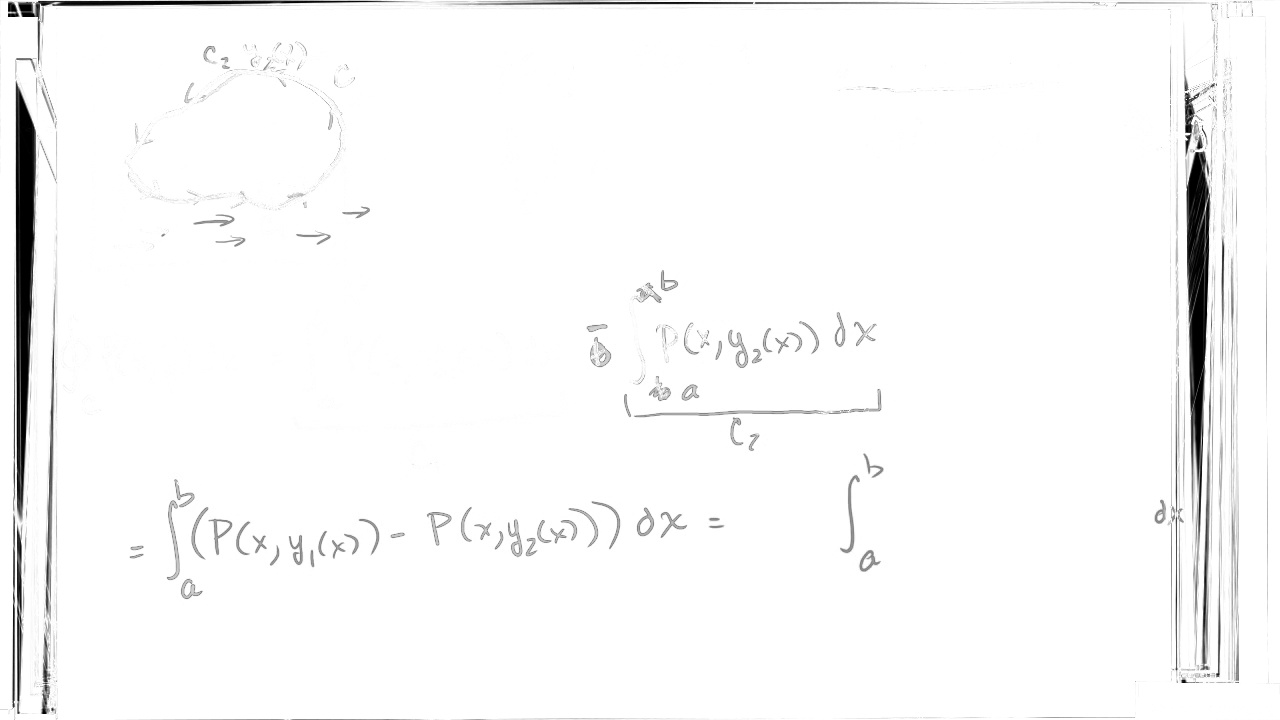 C₂ y₂(x) C
- ∫ₐᵇ P(x, y₂(x)) dx
C₂
= ∫ₐᵇ (P(x, y₁(x)) - P(x, y₂(x))) dx = ∫ₐᵇ dx